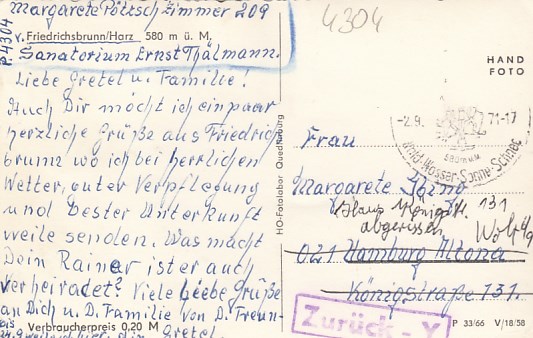 Margarete Pötzsch Zimmer 209
P. 4304
v. Friedrichsbrunn/Harz 580 m ü. M.
Sanatorium Ernst Thälmann.
Liebe Gretel u. Familie!
Auch Dir möcht ich ein paar
herzliche Grüße aus Friedrichs
brunn wo ich bei herrlichen
Wetter, guter Verpflegung
und bester Unterkunft
weile senden. Was macht
Dein Rainer ist er auch
verheiradet? Viele Liebe Grüße
an Dich u. D. Familie von D. Freun-
din Gretel.
bis
Verbraucherpreis 0,20 M
HO-Fotolabor Quedlinburg
4304
HAND
FOTO
-2.9. 71-17
580 m ü.M.
Wald-Wasser-Sonne-Schnee
Frau
Margarete
Haus Königstr. 131
abgerissen Wolf 4/9
021 Hamburg Altona
Königstraße 131.
Zurück - Y
P 33/66 V/18/58